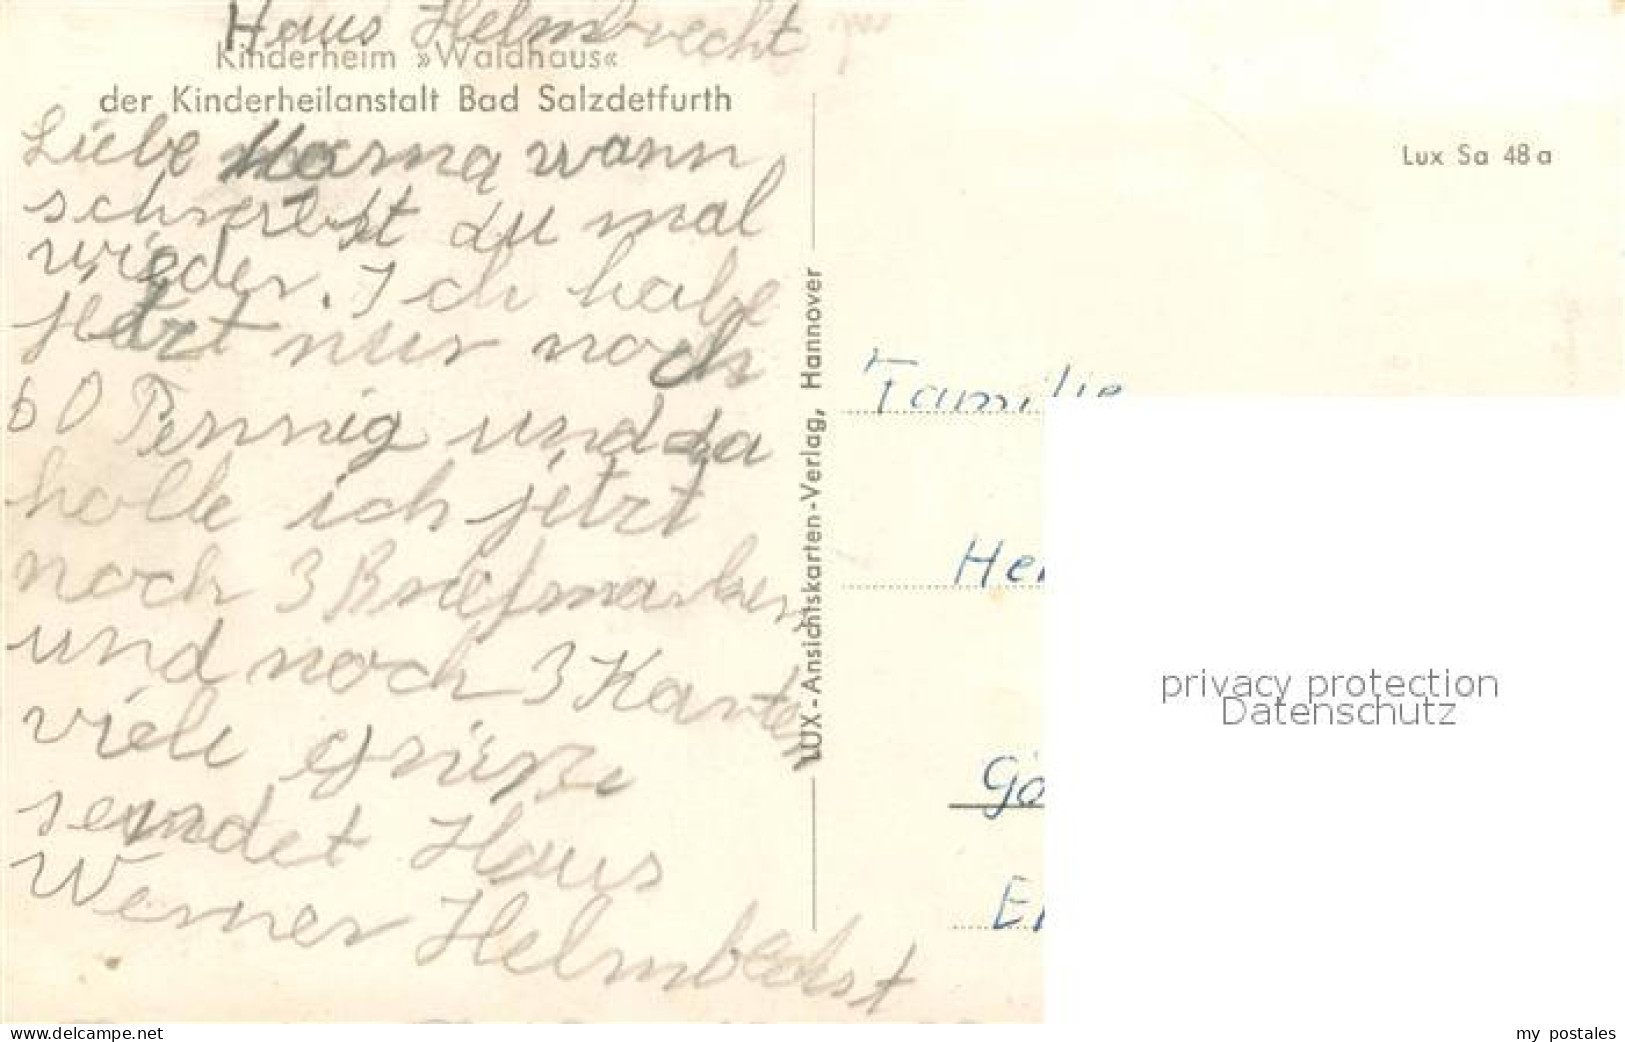 Haus Helmbrecht
Kinderheim »Waldhaus«
der Kinderheilanstalt Bad Salzdetfurth
Liebe Mama wann
schreibst du mal
wieder. Ich habe
jetzt nur noch
60 Pennig und da
holle ich jetzt
noch 3 Briefmarken
und noch 3 Karten
viele Grüße
sendet Haus
Werner Helmbrecht
LUX-Ansichtskarten-Verlag, Hannover
Lux Sa 48 a
Familie
privacy protection
Datenschutz
www.delcampe.net
my_postales